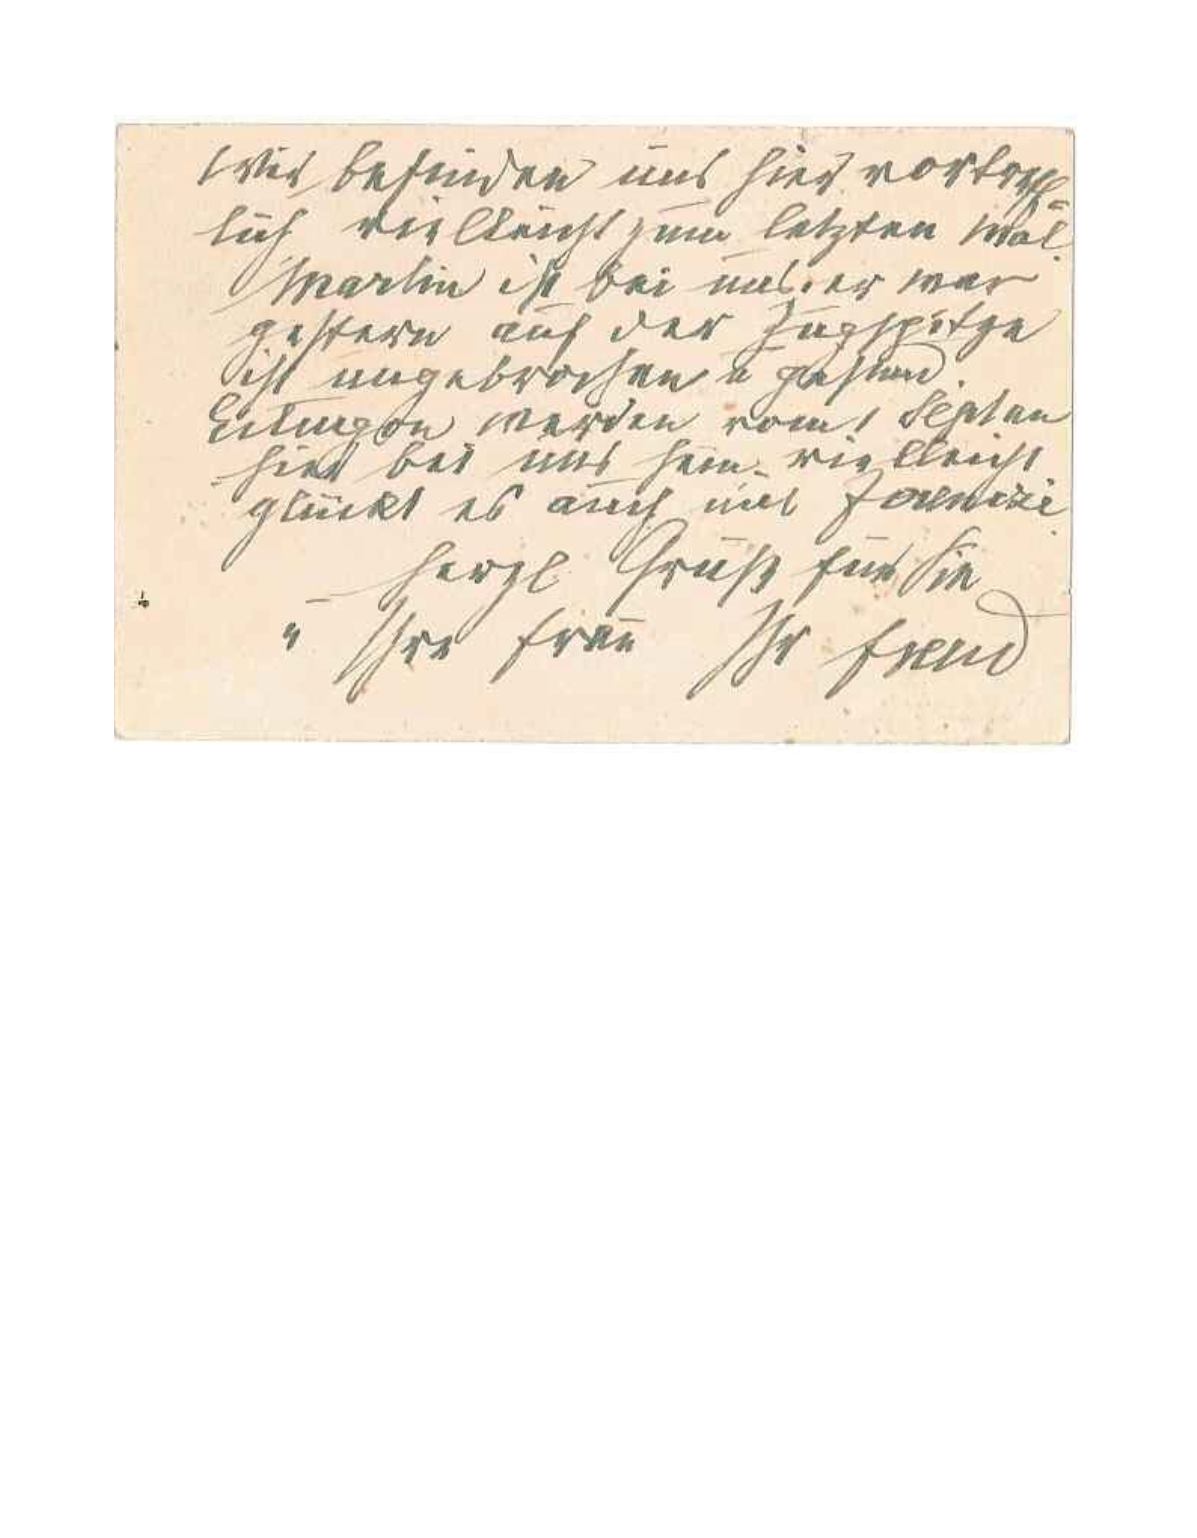 Wir befinden uns hier vortreff-
lich vielleicht zum letzten Mal.
Martin ist bei uns. er war
gestern auf der Zugspitze
ist ungebrochen u gesund.
Eitingon werden vom 1 Septem
hier bei uns sein. vielleicht
glückt es auch uns
herzl Gruß für Sie
u Ihre Frau Ihr Freud